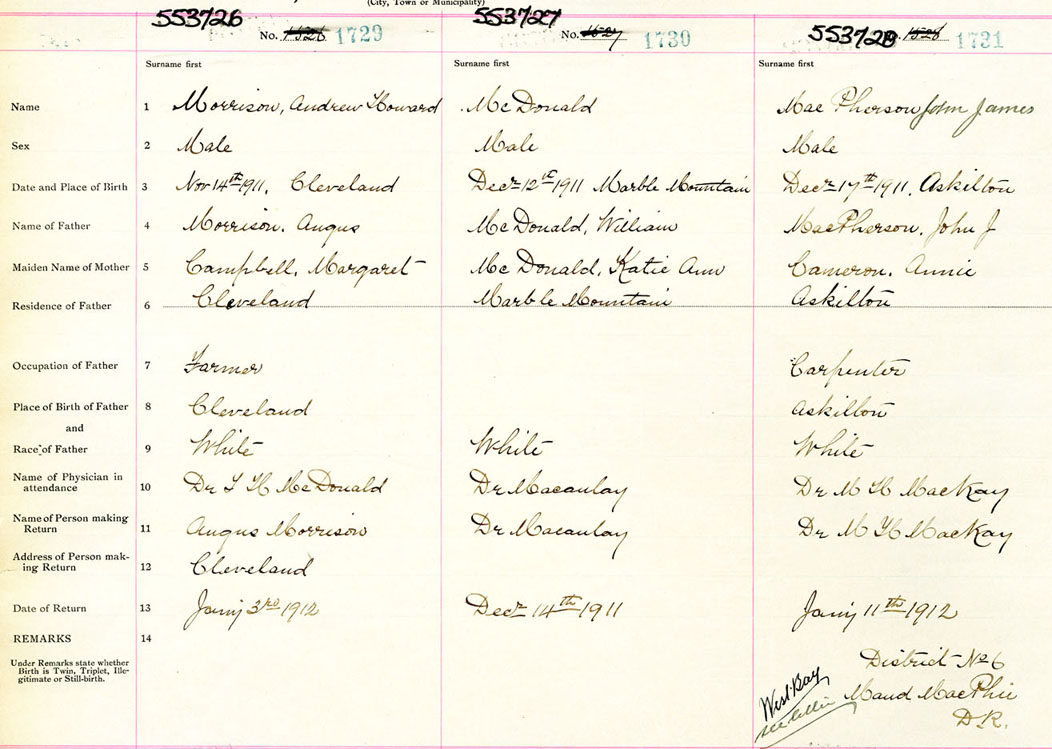 (City, Town or Municipality)
553726 553727 553728
No. 1526 1729 No. 1527 1730 No. 1528 1731
Surname first Surname first Surname first
Name 1 Morrison, Andrew Howard McDonald MacPherson John James
Sex 2 Male Male Male
Date and Place of Birth 3 Nov 14th 1911, Cleveland Decr 12th 1911 Marble Mountain Decr 17th 1911, Askilton
Name of Father 4 Morrison, Angus McDonald, William MacPherson, John J
Maiden Name of Mother 5 Campbell, Margaret McDonald, Katie Ann Cameron, Annie
Residence of Father 6 Cleveland Marble Mountain Askilton
Occupation of Father 7 Farmer Carpenter
Place of Birth of Father 8 Cleveland Askilton
and
Race of Father 9 White White White
Name of Physician in
attendance 10 Dr McDonald Dr Macaulay Dr M H MacKay
Name of Person making
Return 11 Angus Morrison Dr Macaulay Dr M H MacKay
Address of Person mak-
ing Return 12 Cleveland
Date of Return 13 Jany 3rd 1912 Decr 14th 1911 Jany 11th 1912
REMARKS 14
Under Remarks state whether
Birth is Twin, Triplet, Ille-
gitimate or Still-birth.
District No 6
West Bay
Maud MacPhie
D.R.